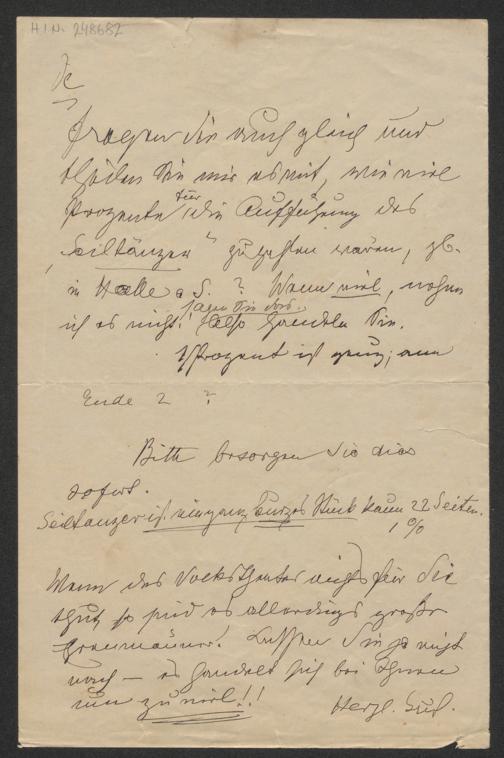 H.I.N. 248682
Fragen Sie auch gleich und
theilen Sie mir es mit, wie viel
Prozente für die Aufführung des
"Seiltänzer" zu zahlen wären, zb.
in Halle a. S. ? Wenn viel, nehme
sagen Sie dies.
ich es nicht! Also handeln Sie.
1 Prozent ist genug; am
Ende 2 ?
Bitte besorgen Sie dies
sofort.
Seiltänzer ist ein ganz kurzes Stück kaum 22 Seiten.
1 %
Wenn das Volkstheater nichts für Sie
thut so sind es allerdings große
Lassen Sie ja nicht
nach — es handelt sich bei Ihnen
um zu viel!!
Herzl. Gruß.